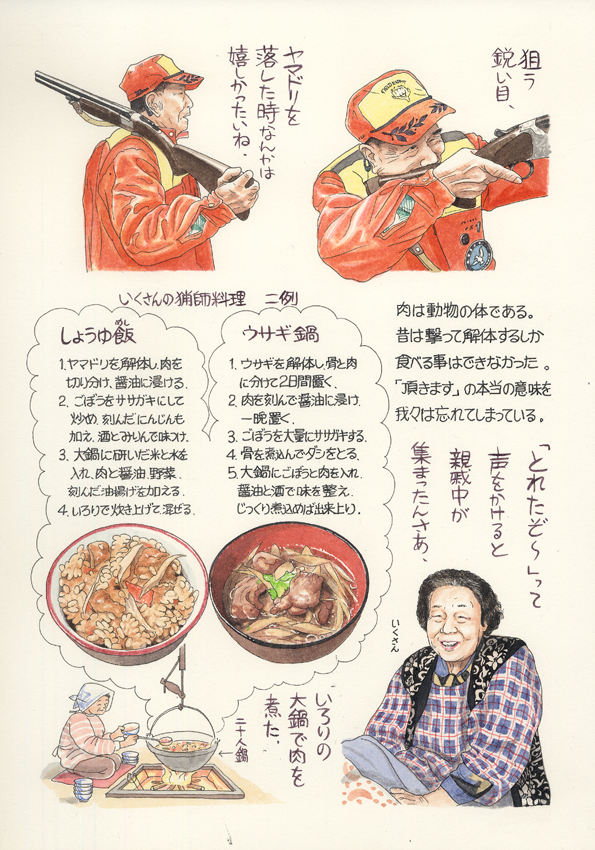 狙う
鋭い目、
ヤマドリを
落した時なんかは
嬉しかったいね、
いくさんの猟師料理 二例
しょうゆ飯
めし
1.ヤマドリを解体し、肉を
切り分け、醤油に浸ける、
2.ごぼうをササガキにして
炒め、刻んだにんじんも
加え、酒とみりんで味つけ、
3、大鍋に研いだ米と水を
入れ、肉と醤油、野菜、
刻んだ油揚げを加える、
4.いろりで炊き上げて、混ぜる、
ウサギ鍋
1.ウサギを解体し、骨と肉
に分けて2日間置く、
2.肉を刻んで醤油に浸け、
一晩置く、
3.ごぼうを大量にササガキする、
4.骨を煮込んでダシをとる、
5、大鍋にごぼうと肉を入れ、
醤油と酒で味を整え、
じっくり煮込めば出来上り、
肉は動物の体である。
昔は撃って解体するしか
食べる事はできなかった。
「頂きます」の本当の意味を
我々は忘れてしまっている。
「とれたぞ〜」って
声をかけると
親戚中が
集まったんさあ、
いくさん
いろりの
大鍋で肉を
煮た、
二十人鍋